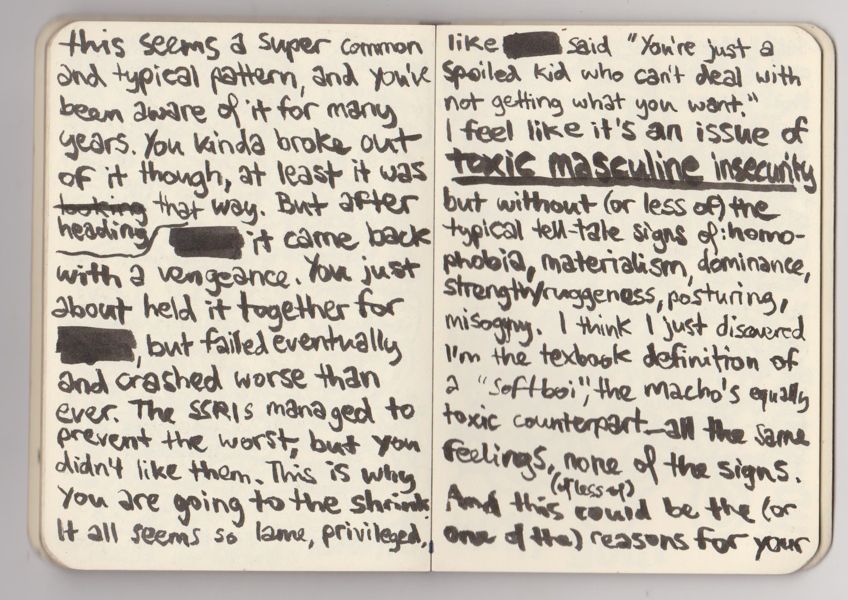 this seems a super common
and typical pattern, and you've
been aware of it for many
years. You kinda broke out
of it though, at least it was
looking that way. But after
heading it came back
with a vengeance. You just
about held it together for
, but failed eventually
and crashed worse than
ever. The SSRIs managed to
prevent the worst, but you
didn't like them. This is why
you are going to the shrink.
It all seems so lame, privileged,
like said "You're just a
spoiled kid who can't deal with
not getting what you want."
I feel like it's an issue of
toxic masculine insecurity
but without (or less of) the
typical tell-tale signs of: homo-
phobia, materialism, dominance,
strength/ruggeness, posturing,
misogyny. I think I just discovered
I'm the texbook definition of
a "softboi", the macho's equally
toxic counterpart—all the same
feelings, none of the signs.
(of less of)
And this could be the (or
one of the) reasons for your